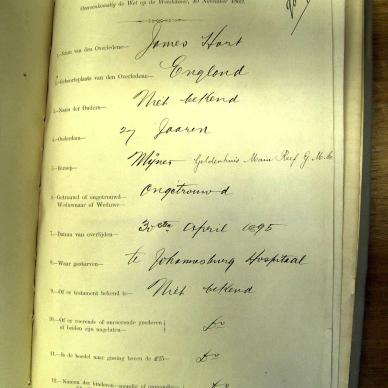 Overeenkomstig de Wet op de Weeskamer, 10 November 1892.
1.—Naam van den Overledene— James Hart
2.—Geboorteplaats van den Overledene— England
3.—Naam der Ouders— Niet bekend
4.—Ouderdom— 27 Jaaren
5.—Beroep— Mijner Geldenhuis Main Reef G. M. Co
6.—Getrouwd of ongetrouwd— Ongetrouwd
Weduwnaar of Weduwe—
7.—Datum van overlijden— 30ste April 1895
8.—Waar gestorven— te Johannesburg Hospitaal
9.—Of er testament bekend is— Niet bekend
10.—Of er roerende of onroerende goederen
of beiden zijn nagelaten—
11.—Is de boedel naar gissing boven de £15—
12.—Namen der kinderen